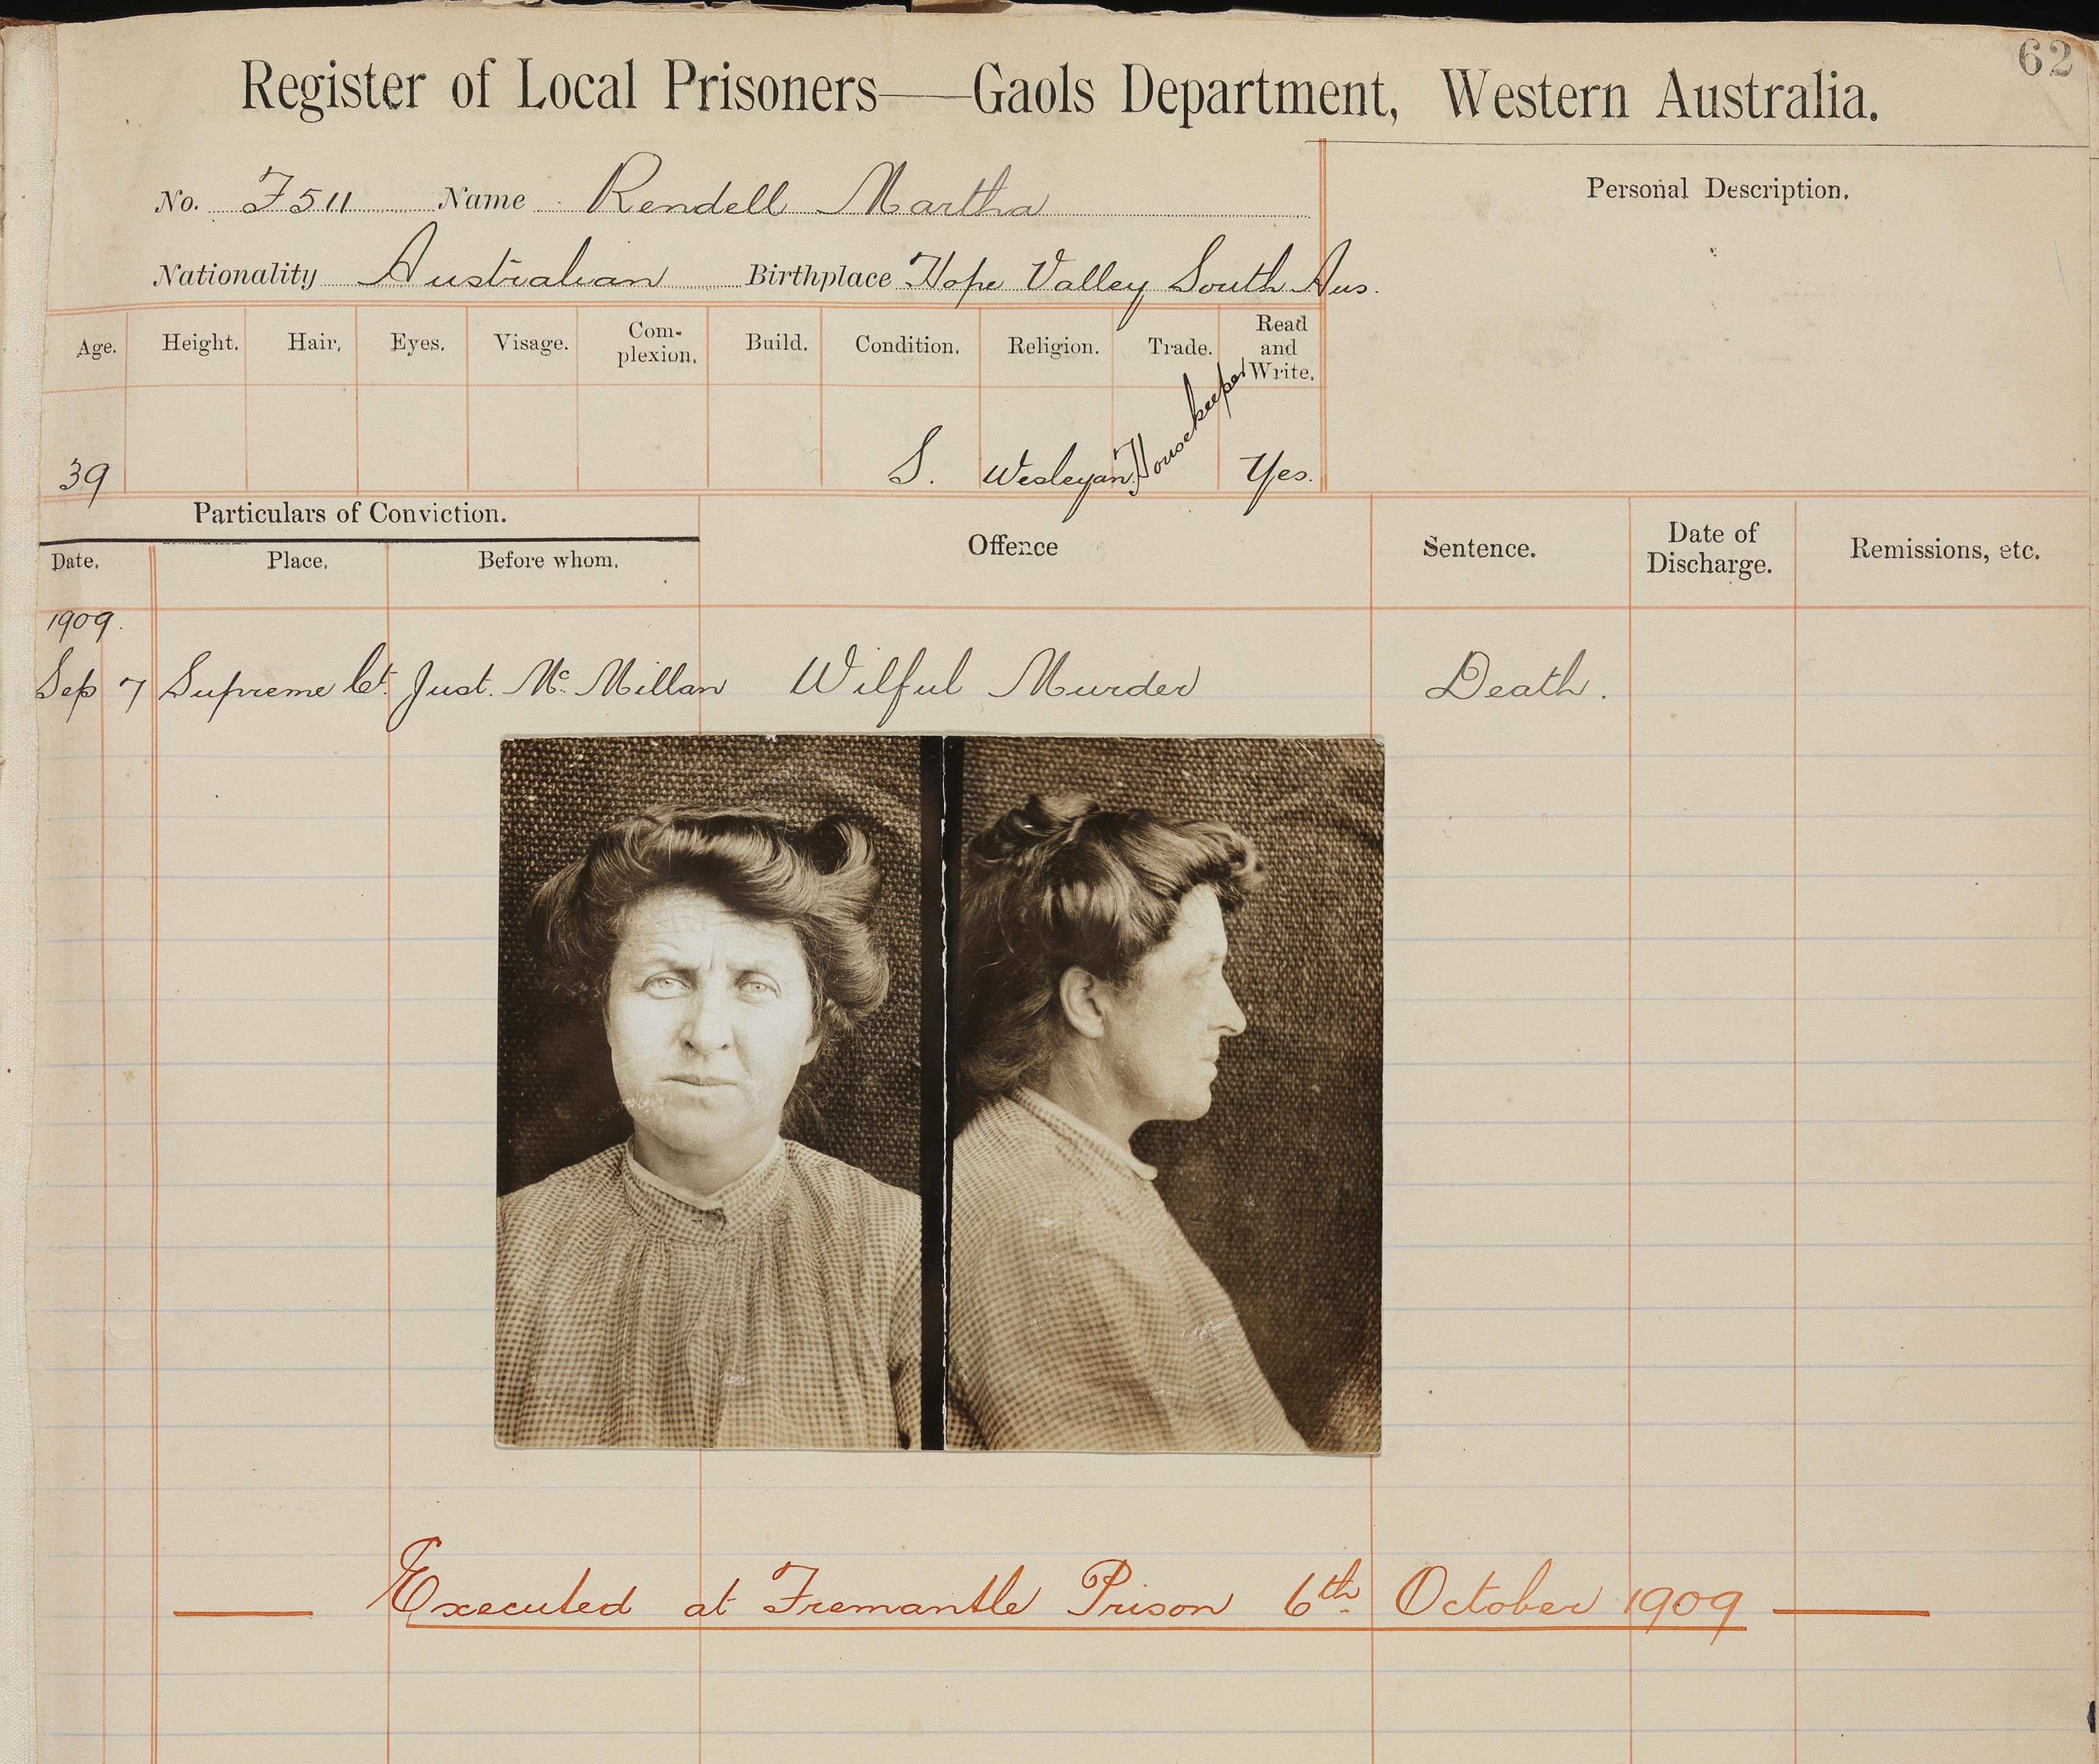 62
Register of Local Prisoners——Gaols Department, Western Australia.
No. F511 Name Rendell Martha
Personal Description.
Nationality Australian Birthplace Hope Valley South Aus.
Age. Height. Hair. Eyes. Visage. Com-plexion. Build. Condition. Religion. Trade. Read and Write.
39 S. Wesleyan Housekeeper Yes.
Particulars of Conviction. Offence Sentence. Date of Discharge. Remissions, etc.
Date. Place. Before whom.
1909.
Sep 7 Supreme Ct. Just. Mc Millan Wilful Murder Death.
Executed at Fremantle Prison 6th October 1909